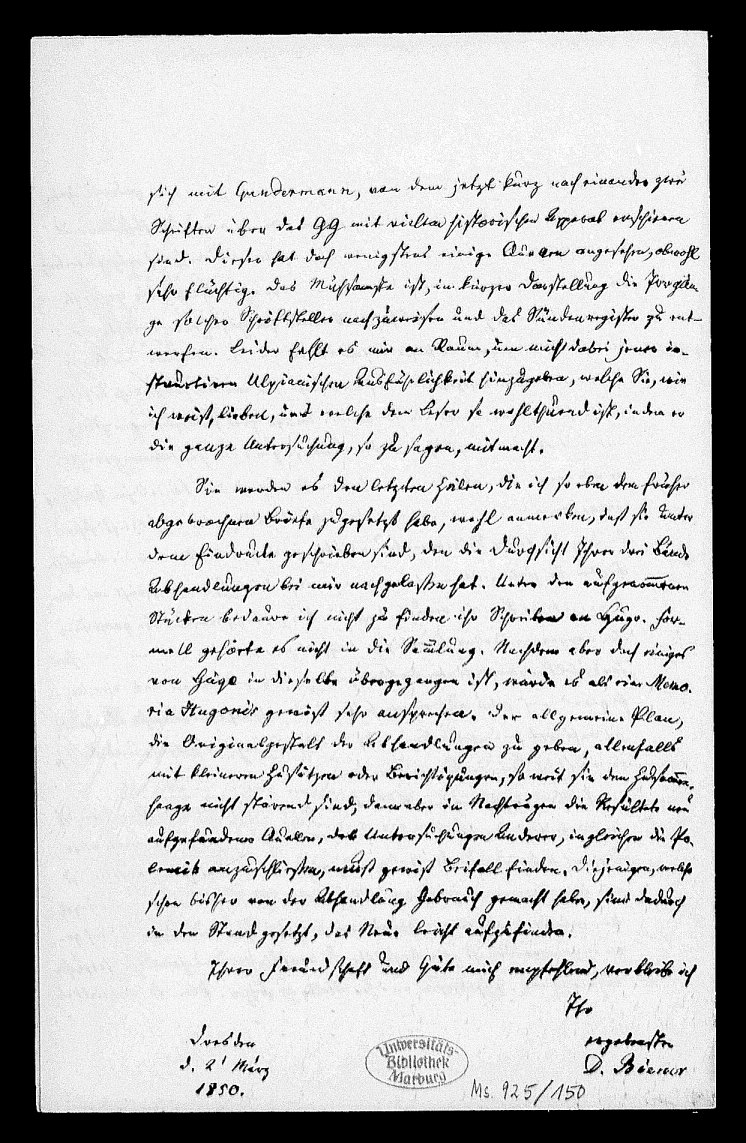 sich mit Gundermann, von dem jetzt kurz nach einander zwei
Schriften über das GG mit vielem historischen Apparat erschienen
sind. Dieser hat doch wenigstens einige Quellen angesehen, obwohl
sehr flüchtig. Das Mühsamste ist, in kurzer Darstellung die Vorgän-
ge solcher Schriftsteller nachzuweisen und das Sündenregister zu ent-
werfen. Leider fehlt es mir an Raum, um mich dabei jener in-
structiven Ulpianischen Ausführlichkeit hinzugeben, welche Sie, wie
ich weiß, lieben, und welche dem Leser so wohlthuend ist, indem er
die ganze Untersuchung, so zu sagen, mitmacht.
Sie werden es den letzten Zeilen, die ich so eben dem früher
abgebrochnen Briefe zugesetzt habe, wohl anmerken, daß sie unter
dem Eindrucke geschrieben sind, den die Durchsicht Ihrer drei Bände
Abhandlungen bei mir nachgelaßen hat. Unter den aufgenommenen
Stücken bedaure ich nicht zu finden ihr Schreiben an Hugo. For-
mell gehörte es nicht in die Sammlung. Nachdem aber doch einiges
von Hugo in dieselbe übergegangen ist, würde es als eine Memo-
ria Hugonis gewiß sehr ansprechen. Der allgemeine Plan,
die Originalgestalt der Abhandlungen zu geben, allenfalls
mit kleineren Zusätzen oder Berichtigungen, so weit sie dem Zusammen-
hange nicht störend sind, dann aber in Nachträgen die Resultate neu
aufgefundener Quellen, der Untersuchungen Anderer, ingleichen die Po-
lemik anzuschließen, muß gewiß Beifall finden. Diejenigen, welche
schon bisher von der Abhandlung Gebrauch gemacht haben, sind dadurch
in den Stand gesetzt, das Neue leicht aufzufinden.
Ihrer Freundschaft und Güte mich empfehlend, verbleibe ich
Ihr
Dresden
ergebenster
d. 2 März
D.
1850.
Universitäts-
Bibliothek
Marburg
Ms. 925/150